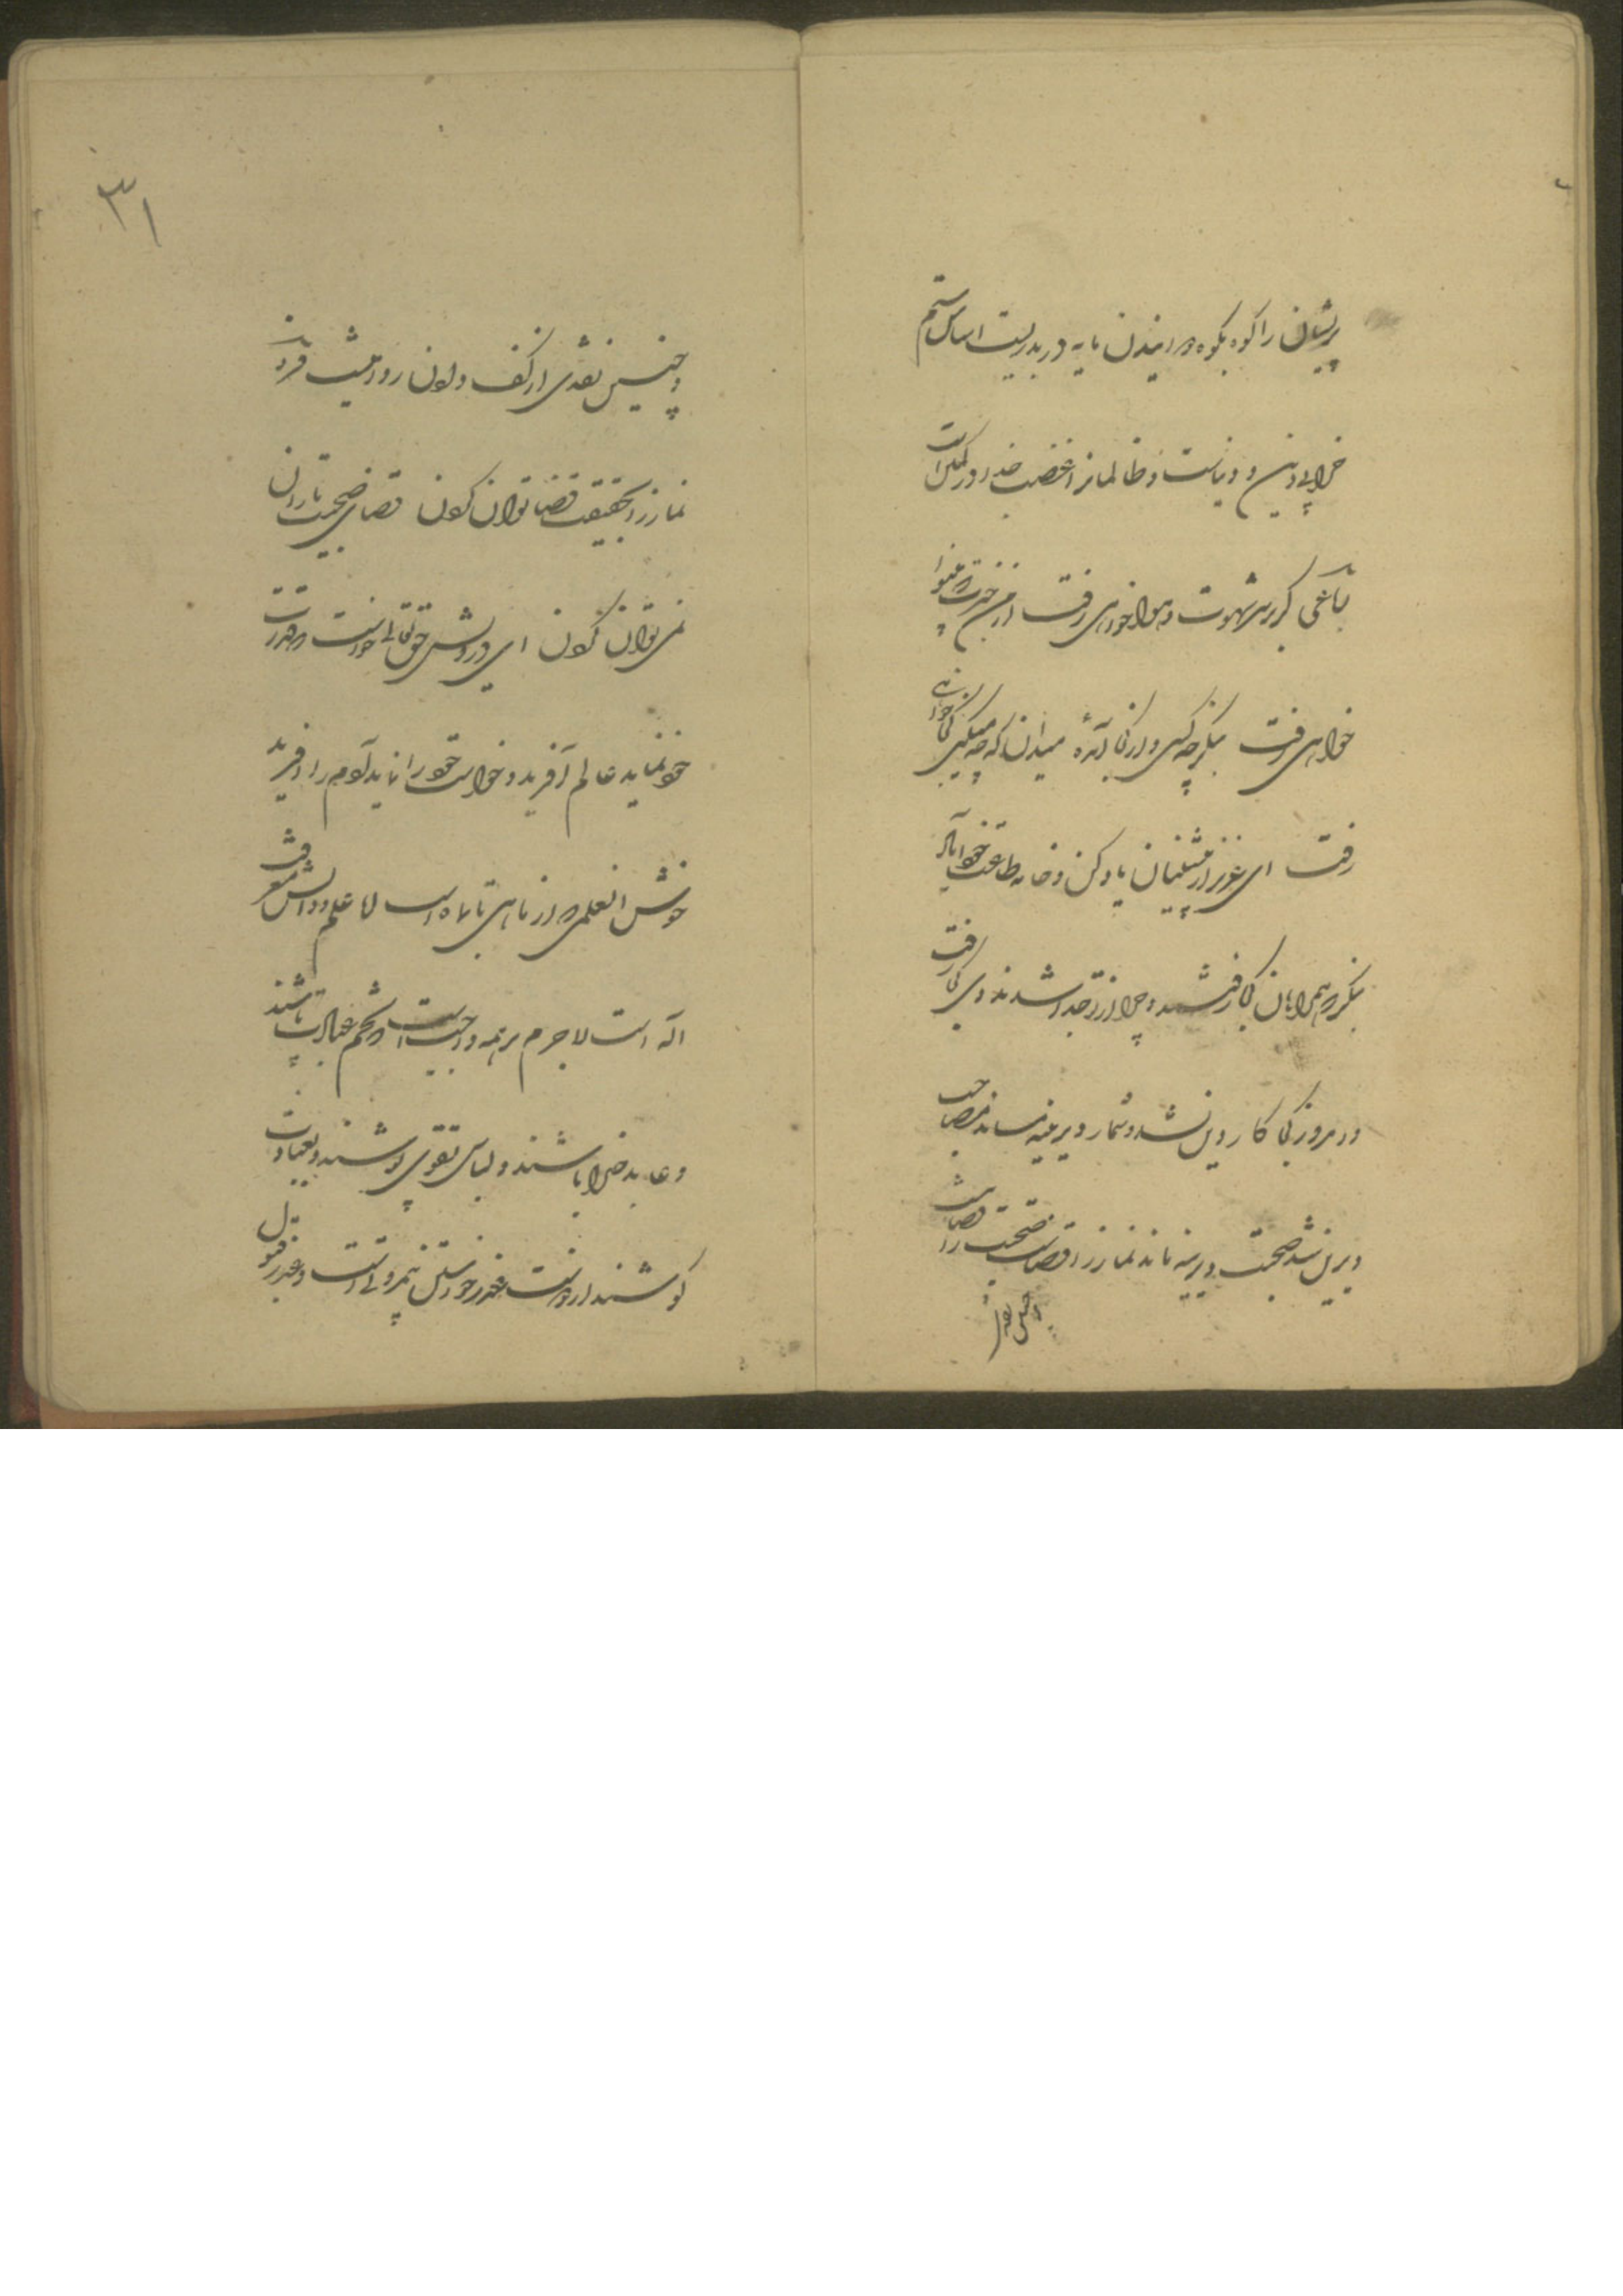 پریشان را کوه بکوه دوانیدن مایه در بدریست اساس ستم
خرابی دین و دیانت و ظالمانرا غضب خدا در کمین است
باغی که بر سر شهوت و هوا خواهی رفت از من خبرت که بینوا
خواهی رفت بنگر چه کسی و از کجا آمدهٔ میدان که چه میکنی کجا خواهی
رفت ای عزیز از پیشینیان یاد کن و خانه طاعت خود آباد
بنگر که همراهان کجا رفتند و چرا از تو جدا شدند دی کجا رفت
و امروز کی کار دین نشد و شمار دیرینه نماند مصاحب
دیرین نشد صحبت دیرینه نماند نماز را قضاست صحبت را قضا نیست
و چنین نقدی
۳۱
و چنین نقدی از کف دادن روا نیست فرد
نماز را بحقیقت قضا توان کردن قضای صحبت یاران
نمی توان کردن ای درویش حق تعالی خواست که قدرت
خود نماید عالم آفرید و خواست خود را نماید آدم را آفرید
خوش العلمی که از ماهی تا ماه است اما علم و دانش معرفت
اله است لاجرم بر همه واجبست که بحکم عبادت باشند
و عابد خدا باشند و لباس تقوی پوشند و بعبادت
کوشند از دوست عذر خواستن نیم روئیست و عذر قبول